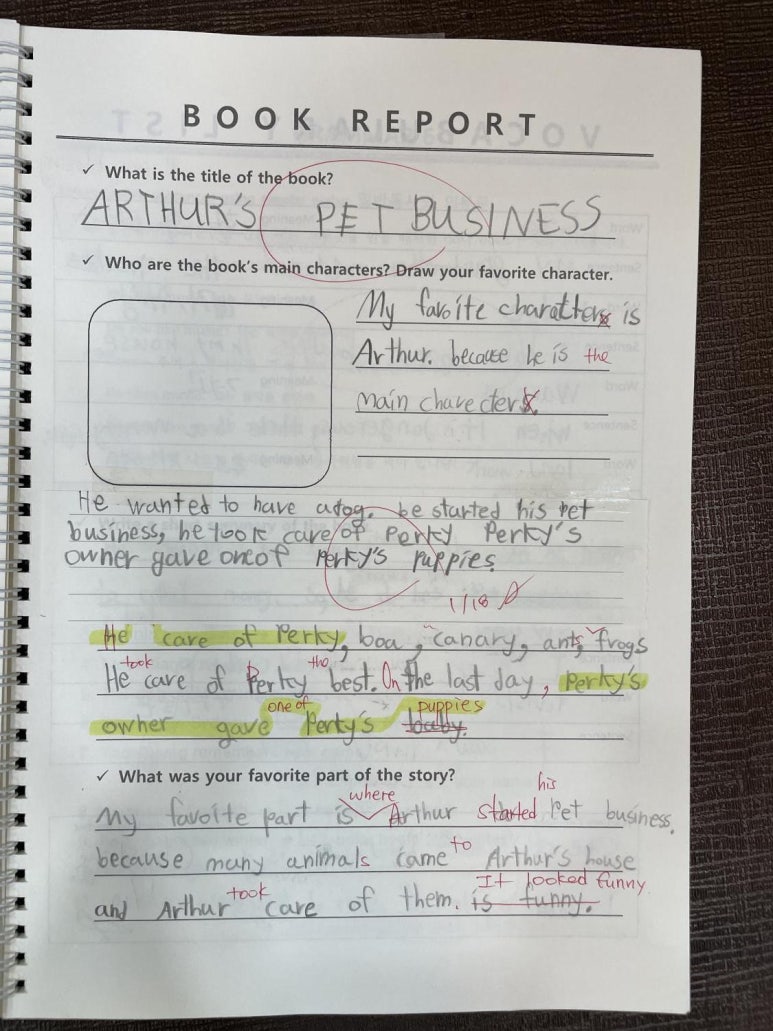 BOOK REPORT
✓ What is the title of the book?
ARTHUR'S PET BUSINESS
✓ Who are the book's main characters? Draw your favorite character.
My favoite charatters is
Arthur. because he is the
main charecters.
He wanted to have a dog. he started his pet
business, he took care of Perky Perky's
owner gave one of Perky's puppies.
1/18
He care of Perky, boa, canary, ants, frogs
took the
He care of Perky best. On the last day, Perky's
one of puppies
owner gave Perty's baby.
✓ What was your favorite part of the story?
where his
My favoite part is Arthur started Pet business.
to
because many animals came Arthur's house
took It looked funny
and Arthur care of them. is funny.